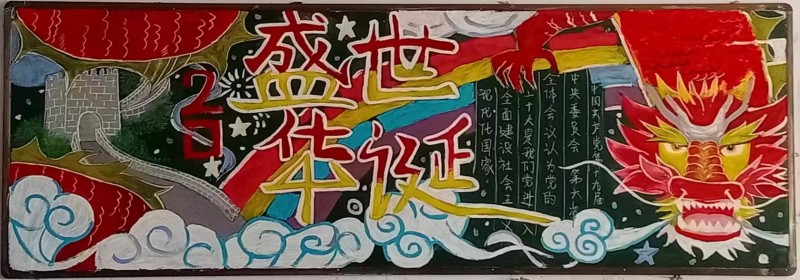 盛世
华诞
中国共产党第十九届
中央委员会第六次
全体会议认为党的
十大是我们党进入
全面建设社会主义
现代化国家。